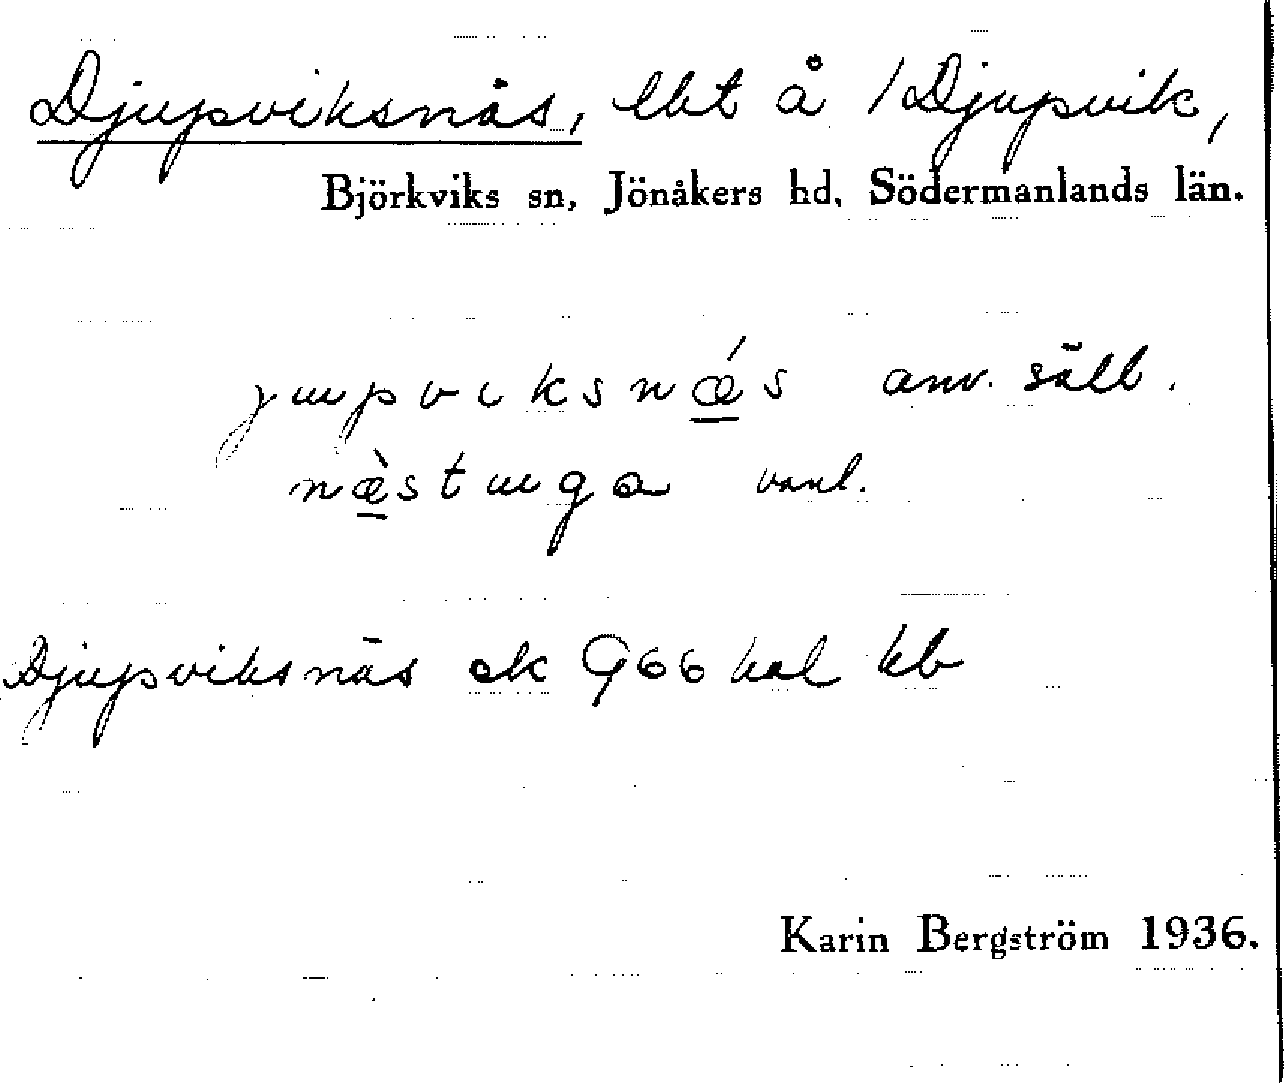 Djupviksnäs, lht å /Djupvik,
Björkviks sn, Jönåkers hd, Södermanlands län.
jupviksnǽs anv. sälb.
næ̀stuga vanl.
Djupviksnäs ek 966 hal kb
Karin Bergström 1936.